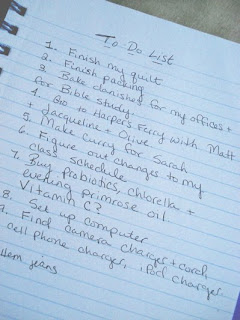 To Do List
1. Finish my quilt
2. Finish packing
3. Bake danishes for my offices +
for Bible study.
4. Go to Harper's Ferry with Matt
+ Jacqueline + Clive
5. Make Curry for Sarah
6. Figure out changes to my
class schedule
7. Buy probiotics, chlorella +
evening primrose oil.
Vitamin C?
8. Set up computer
9. Find camera charger + cord,
cell phone charger, iPod charger.
Hem jeans